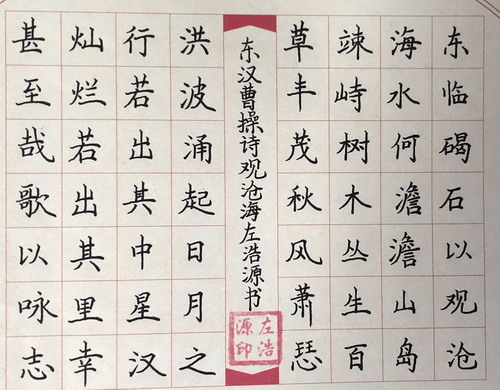 东临碣石以观沧
海水何澹澹山岛
竦峙树木丛生百
草丰茂秋风萧瑟
东汉曹操诗观沧海左浩源书
左浩源印
洪波涌起日月之
行若出其中星汉
灿烂若出其里幸
甚至哉歌以咏志